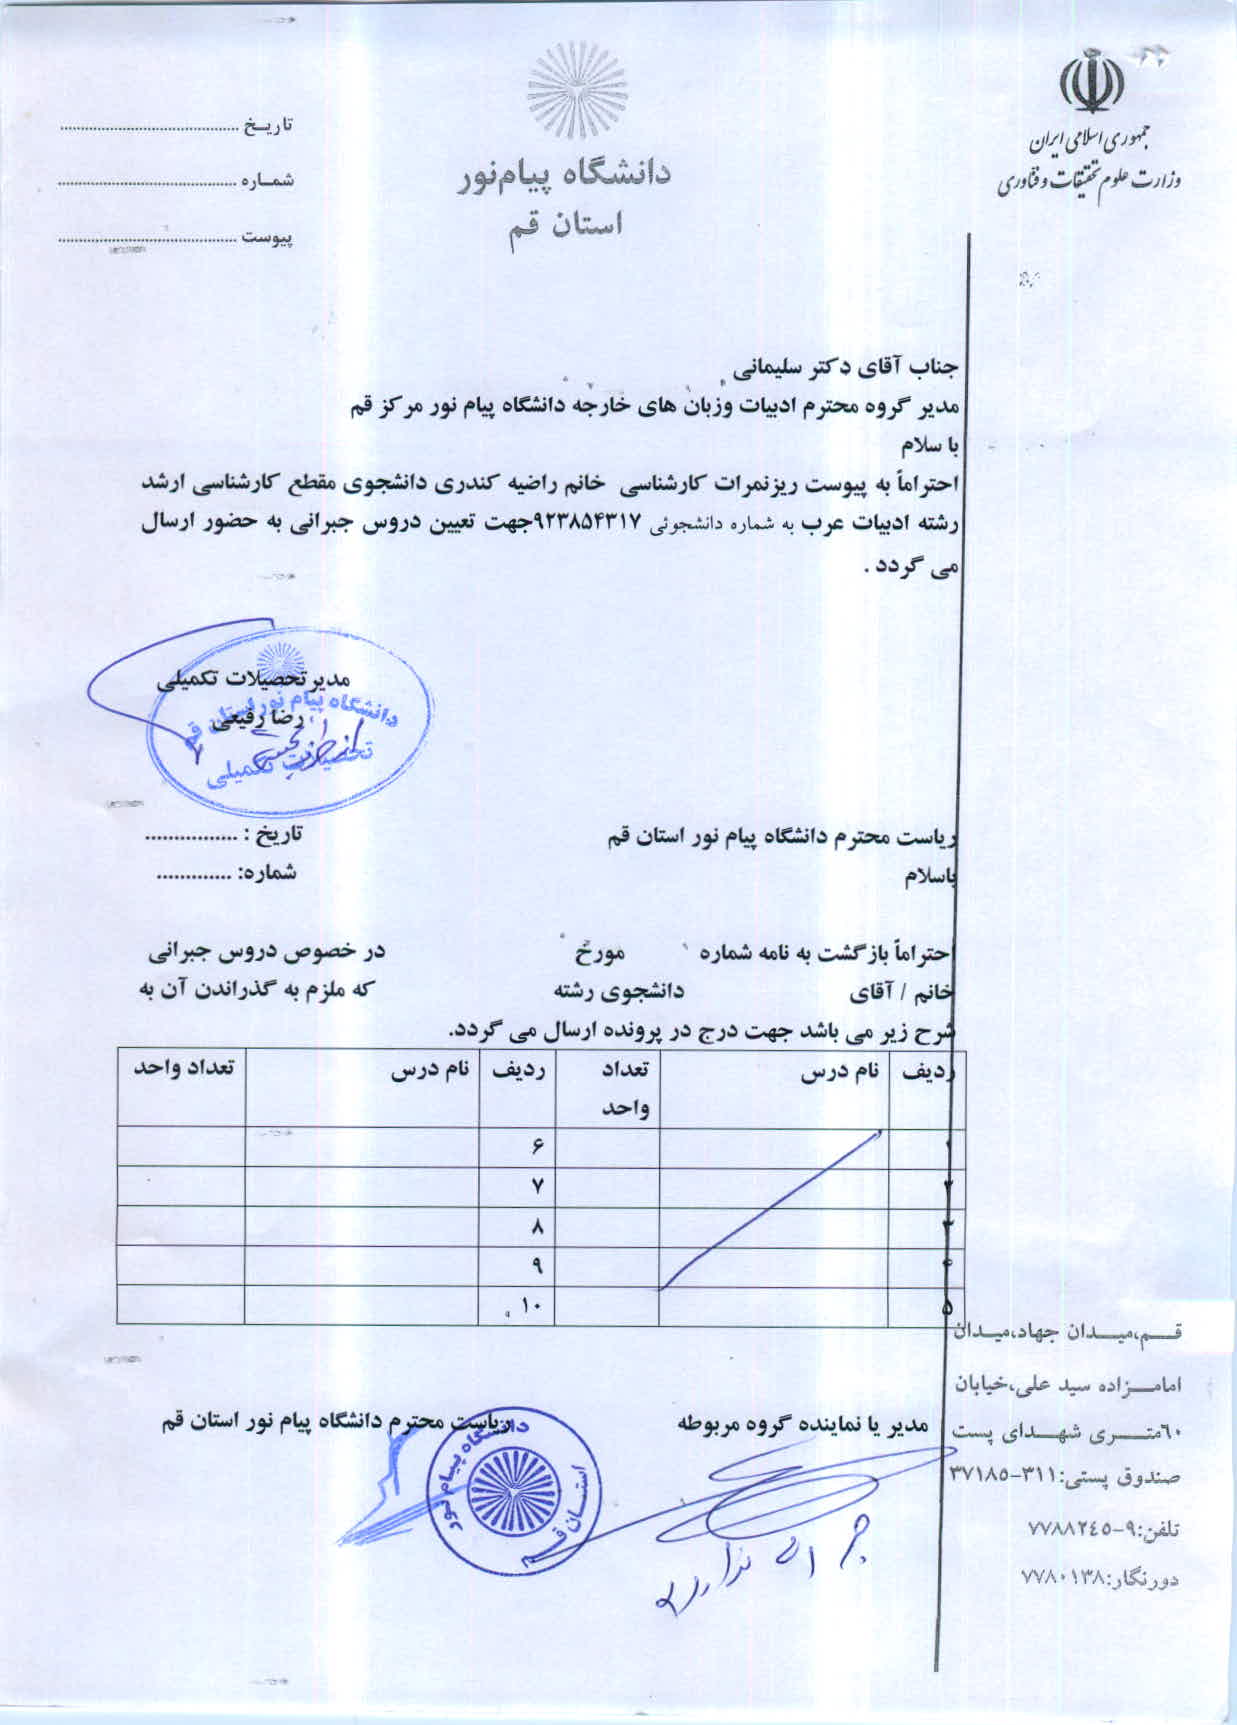 جمهوری اسلامی ایران
وزارت علوم تحقیقات و فناوری
دانشگاه پیام‌نور
استان قم
تاریـخ ............................................
شمـاره ............................................
پیوست ............................................
جناب آقای دکتر سلیمانی
مدیر گروه محترم ادبیات وزبان های خارجه دانشگاه پیام نور مرکز قم
با سلام
احتراماً به پیوست ریزنمرات کارشناسی خانم راضیه کندری دانشجوی مقطع کارشناسی ارشد
رشته ادبیات عرب به شماره دانشجوئی ۹۲۳۸۵۴۳۱۷جهت تعیین دروس جبرانی به حضور ارسال
می گردد .
مدیر تحصیلات تکمیلی
رضا رفیعی
دانشگاه پیام نور استان قم
تحصیلات تکمیلی
ریاست محترم دانشگاه پیام نور استان قم
تاریخ : ................
باسلام
شماره: .............
احتراماً بازگشت به نامه شماره مورخ در خصوص دروس جبرانی
خانم / آقای دانشجوی رشته که ملزم به گذراندن آن به
شرح زیر می باشد جهت درج در پرونده ارسال می گردد.
ردیف نام درس تعداد واحد ردیف نام درس تعداد واحد
۱ ۶
۲ ۷
۳ ۸
۴ ۹
۵ ۱۰
مدیر یا نماینده گروه مربوطه
ریاست محترم دانشگاه پیام نور استان قم
دانشگاه پیام نور
استان قم
جبرانی ندارد
قـــم،میـــدان جهاد،میـدان
امامـــزاده سید علی،خیابان
٦٠متـــری شهـــدای پست
صندوق پستی:۳۱۱-۳۷۱۸۵
تلفن:۹-۷۷۸۸۲٤۵
دورنگار:۷۷۸۰۱۳۸